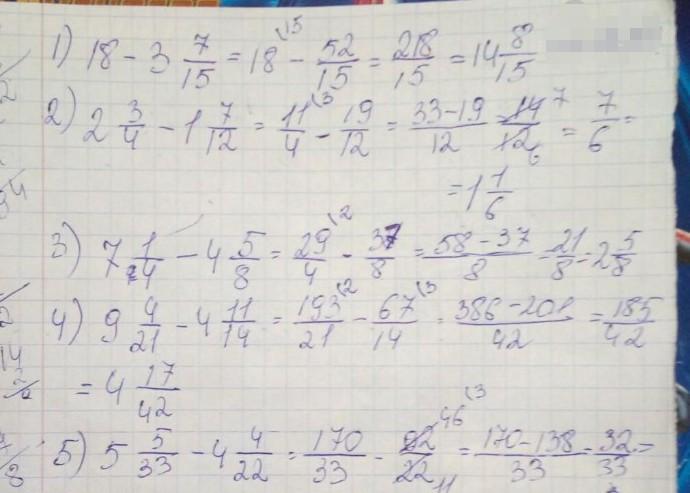 1) 18 - 3 7/15 = 18 (15 - 52/15 = 218/15 = 14 8/15
2) 2 3/4 - 1 7/12 = 11/4 (3 - 19/12 = 33-19/12 = 14/12 7/6 = 7/6 =
= 1 1/6
3) 7 1/4 - 4 5/8 = 29/4 (2 - 37/8 = 58-37/8 = 21/8 = 2 5/8
4) 9 4/21 - 4 11/14 = 193/21 (2 - 67/14 (3 = 386-201/42 = 185/42
= 4 17/42
5) 5 5/33 - 4 4/22 = 170/33 - 92/22 46/11 (3 = 170-138/33 = 32/33 =